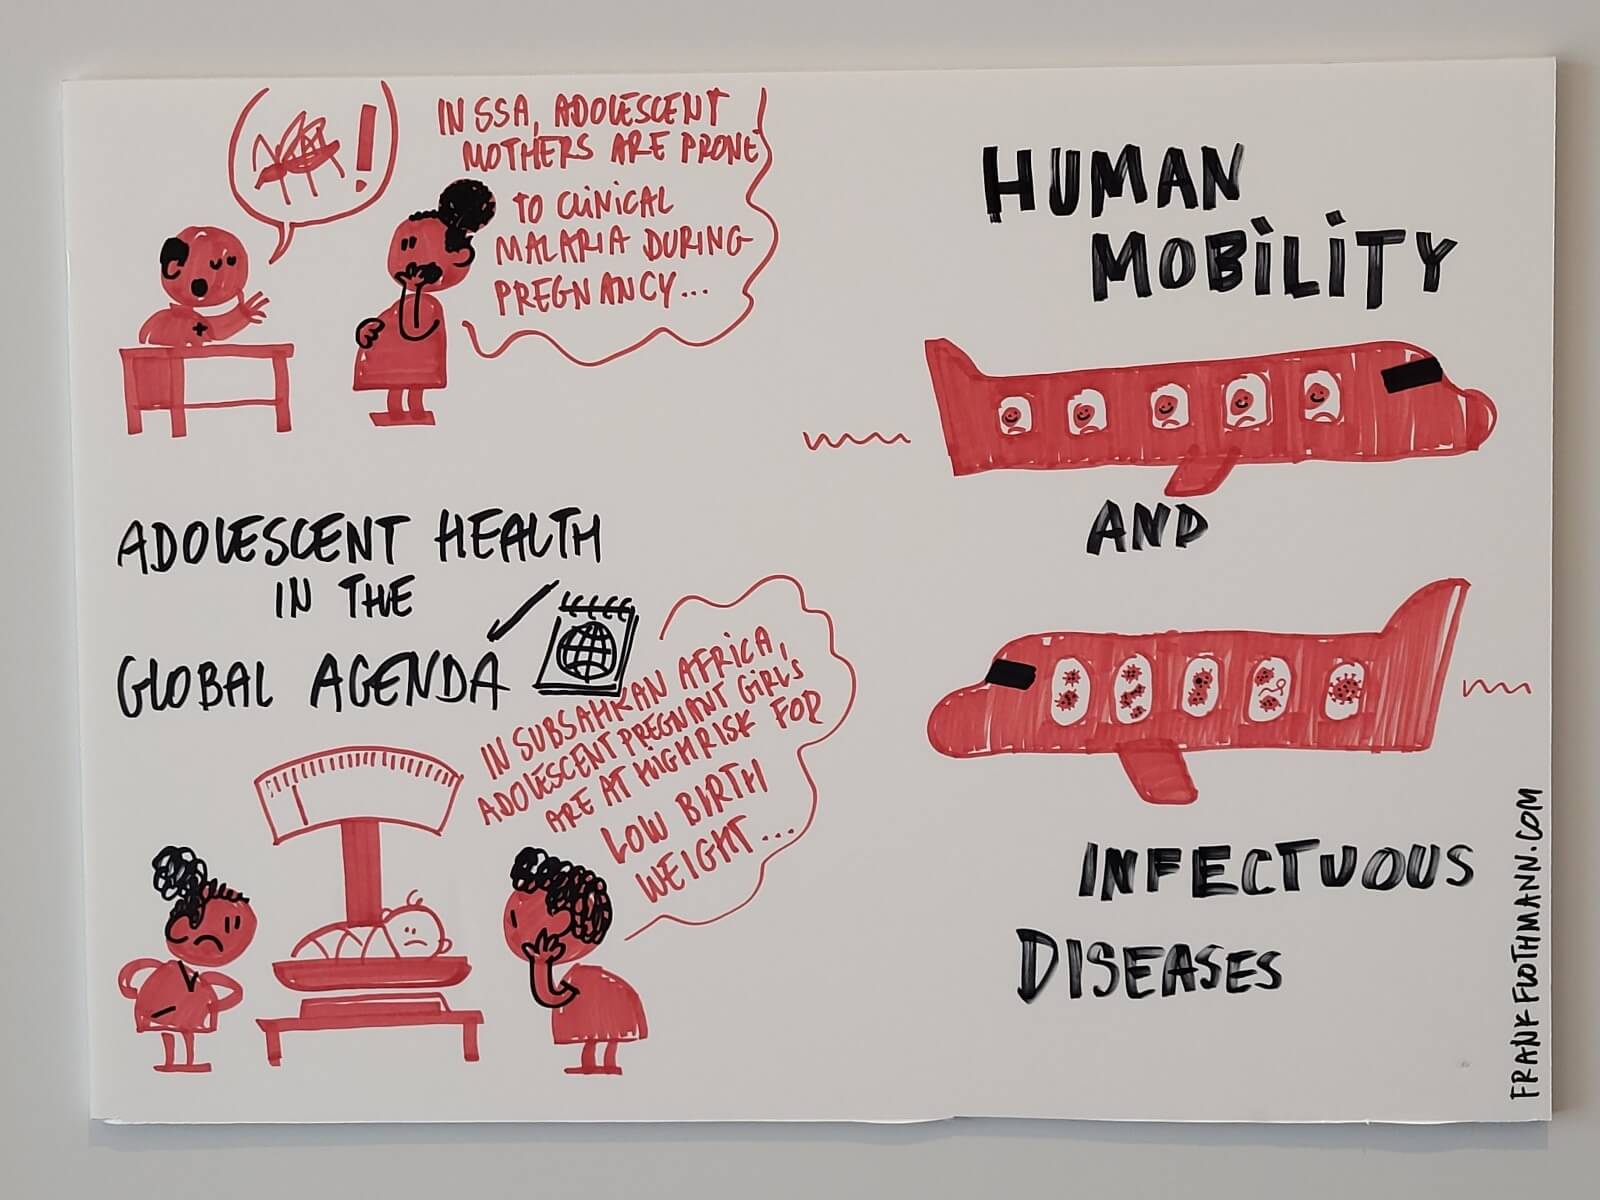 IN SSA, ADOLESCENT
MOTHERS ARE PRONE
TO CLINICAL
MALARIA DURING
PREGNANCY...
ADOLESCENT HEALTH
IN THE
GLOBAL AGENDA
IN SUBSAHKAN AFRICA,
ADOLESCENT PREGNANT GIRLS
ARE AT HIGH RISK FOR
LOW BIRTH
WEIGHT...
HUMAN
MOBILITY
AND
INFECTUOUS
DISEASES
FRANKFLOTHMANN.COM